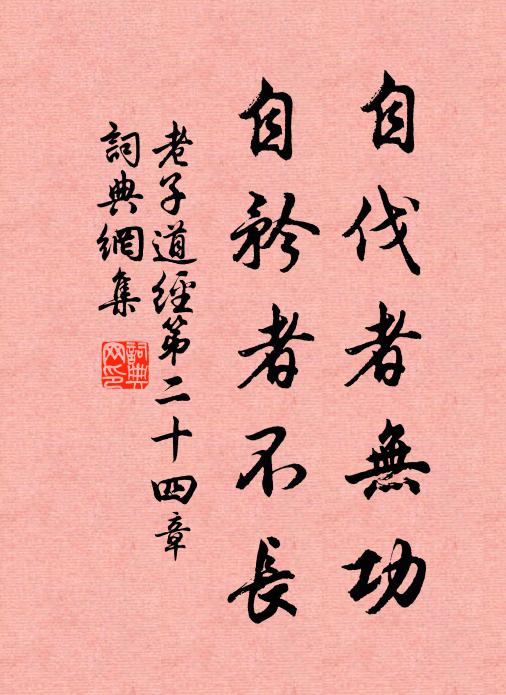 自伐者無功
自矜者不長
老子道經第二十四章
詞典網集
詞典
网印